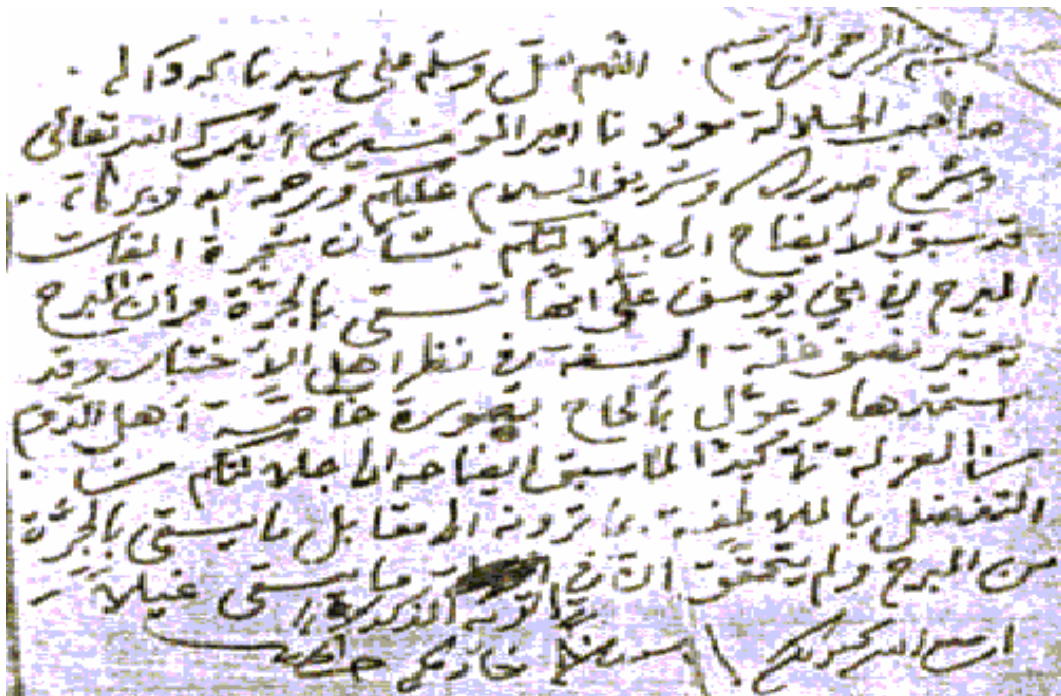 بسم الله الرحمن الرحيم . اللهم صل وسلم على سيدنا محمد وآله .
صاحب الجلالة مولانا امير المؤمنين أيدكم الله تعالى
وشرح صدركم وشريف السلام عليكم ورحمة الله وبركاته .
قد سبق الايضاح الى جلالتكم بشأن شجرة القات
المبرح في بني يوسف على انها تسقى بالجرة وان المبرح
يعتبر نصف غلة السنة في نظر اهل الاختبار وقد
وعول بألحاح بصورة خاصة أهل
من العزلة تأكيدا لما سبق ايضاحه الى جلالتكم من
التفضل بالملاطفة بما ترونه الى مقابل ما يسقى بالجرة
من المبرح ولم يتحقق الآن ما يسقى غيلا
القرية المذكورة
خادمكم